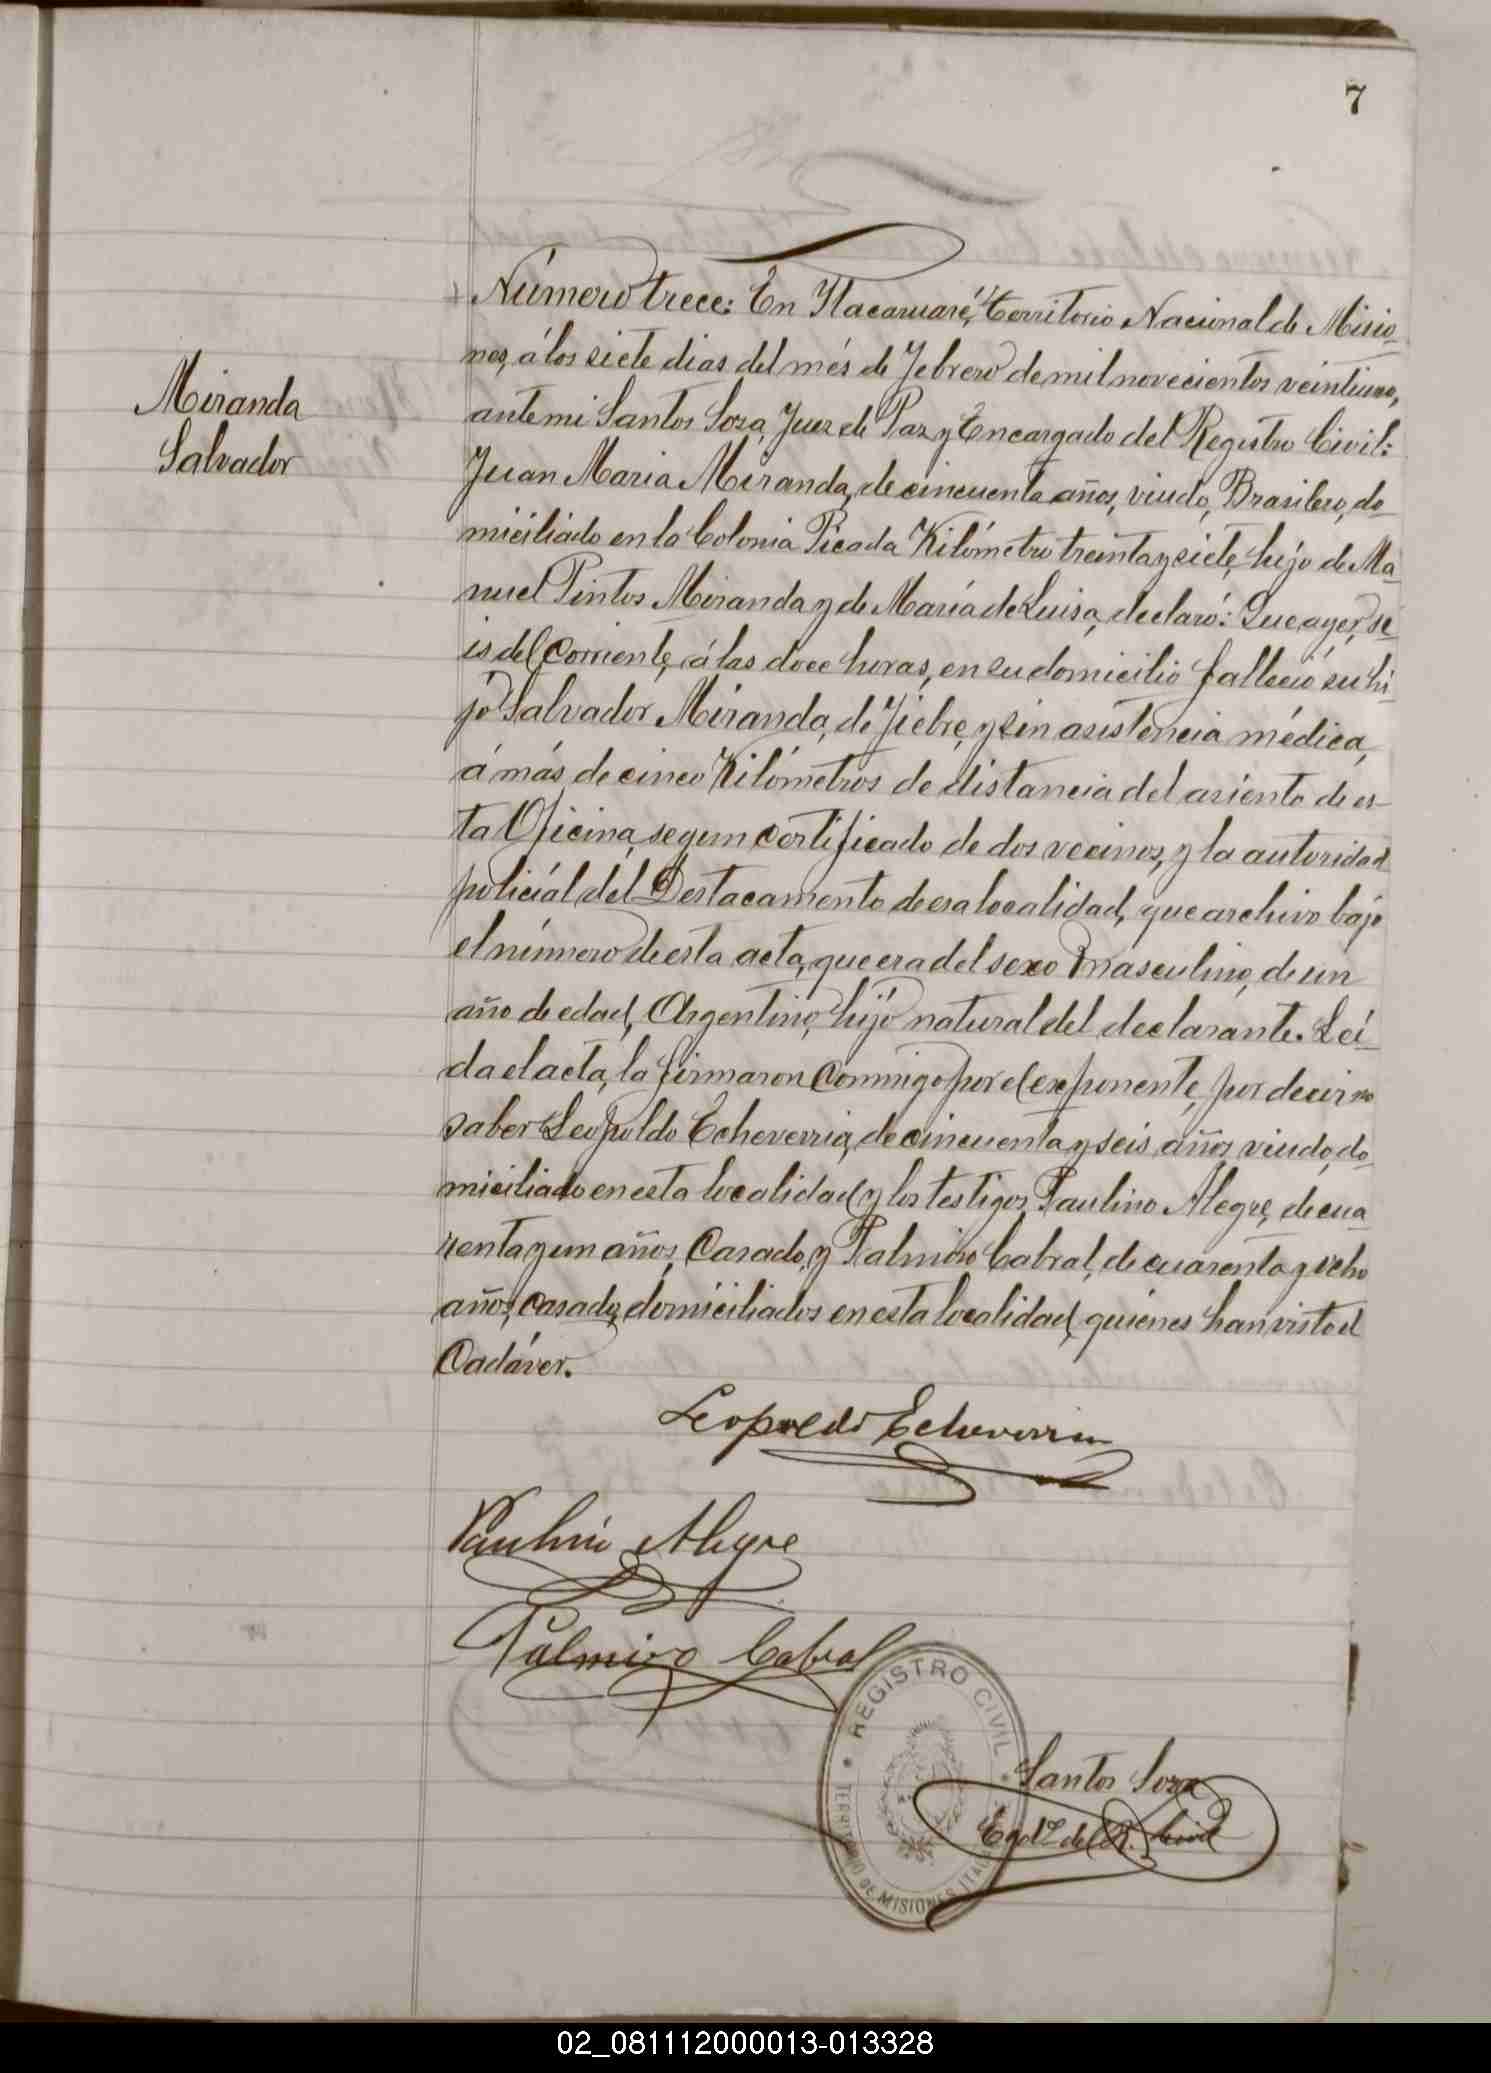 7
Miranda
Salvador
Número trece: En Itacaruaré, Territorio Nacional de Misio-
nes, á los siete dias del més de Febrero de mil novecientos veintiuno,
ante mi Santos Sosa, Juez de Paz y Encargado del Registro Civil:
Juan Maria Miranda, de cincuenta años, viudo, Brasilero, do-
miciliado en la Colonia Picada Kilómetro treinta y siete, hijo de Ma-
nuel Pintos Miranda y de María de Luisa, declaró: Que ayer, se-
is del Corriente, á las doce horas, en su domicilio falleció su hi-
jo Salvador Miranda, de Fiebre, y sin asistencia médica,
á más de cinco Kilómetros de distancia del asiento de es-
ta Oficina, segun certificado de dos vecinos, y la autoridad
policiál del Destacamento de esa localidad, que archivo bajo
el número de esta acta, que era del sexo masculino, de un
año de edad, Argentino, hijo natural del declarante. Leí-
da el acta, la firmaron Conmigo por el exponente, por decir no
saber Leopoldo Echeverria, de cincuenta y seis años, viudo, do-
miciliado en esta localidad y los testigos, Paulino Alegre, de cua-
renta y un años, Casado, y Palmiro Cabral, de cuarenta y ocho
años, casado, domiciliados en esta localidad, quiénes han visto el
Cadáver.
Leopoldo Echeverria
Paulino Alegre
Palmiro Cabral
REGISTRO CIVIL
TERRITORIO DE MISIONES
Santos Sosa
Egdo. del R. Civil
02_081112000013-013328